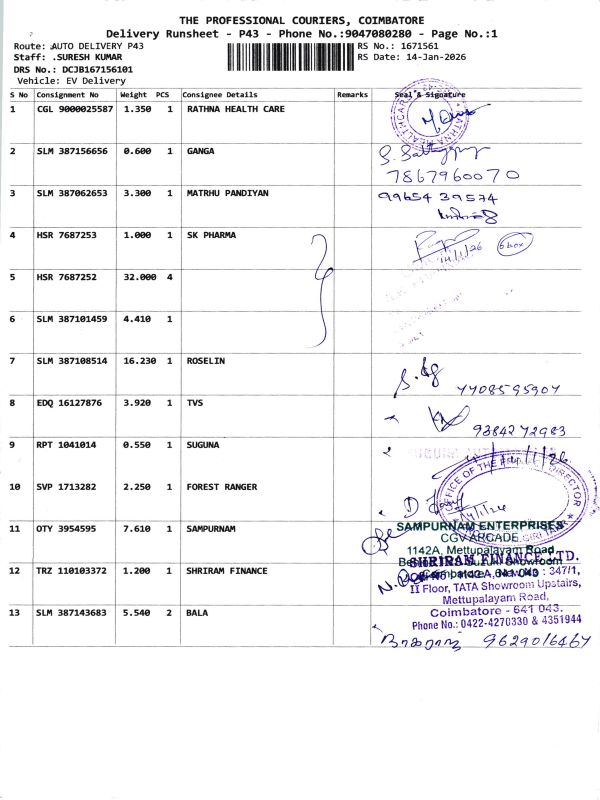 THE PROFESSIONAL COURIERS, COIMBATORE
Delivery Runsheet - P43 - Phone No.:9047080280 - Page No.:1
Route: AUTO DELIVERY P43
RS No.: 1671561
Staff: .SURESH KUMAR
RS Date: 14-Jan-2026
DRS No.: DCJB167156101
Vehicle: EV Delivery
S No Consignment No Weight PCS Consignee Details Remarks Seal & Signature
1 CGL 9000025587 1.350 1 RATHNA HEALTH CARE
2 SLM 387156656 0.600 1 GANGA
7867960070
3 SLM 387062653 3.300 1 MATRHU PANDIYAN 99654 39574
4 HSR 7687253 1.000 1 SK PHARMA
14/1/26 6 box
5 HSR 7687252 32.000 4
6 SLM 387101459 4.410 1
7 SLM 387108514 16.230 1 ROSELIN
7708595907
8 EDQ 16127876 3.920 1 TVS
9384272983
9 RPT 1041014 0.550 1 SUGUNA
10 SVP 1713282 2.250 1 FOREST RANGER
OFFICE OF THE DIRECTOR
11 OTY 3954595 7.610 1 SAMPURNAM
SAMPURNAM ENTERPRISES
CGV ARCADE
1142A, Mettupalayam Road
12 TRZ 110103372 1.200 1 SHRIRAM FINANCE
SHRIRAM FINANCE LTD.
347/1,
II Floor, TATA Showroom Upstairs,
Mettupalayam Road,
Coimbatore - 641 043.
Phone No.: 0422-4270330 & 4351944
13 SLM 387143683 5.540 2 BALA
9629016467